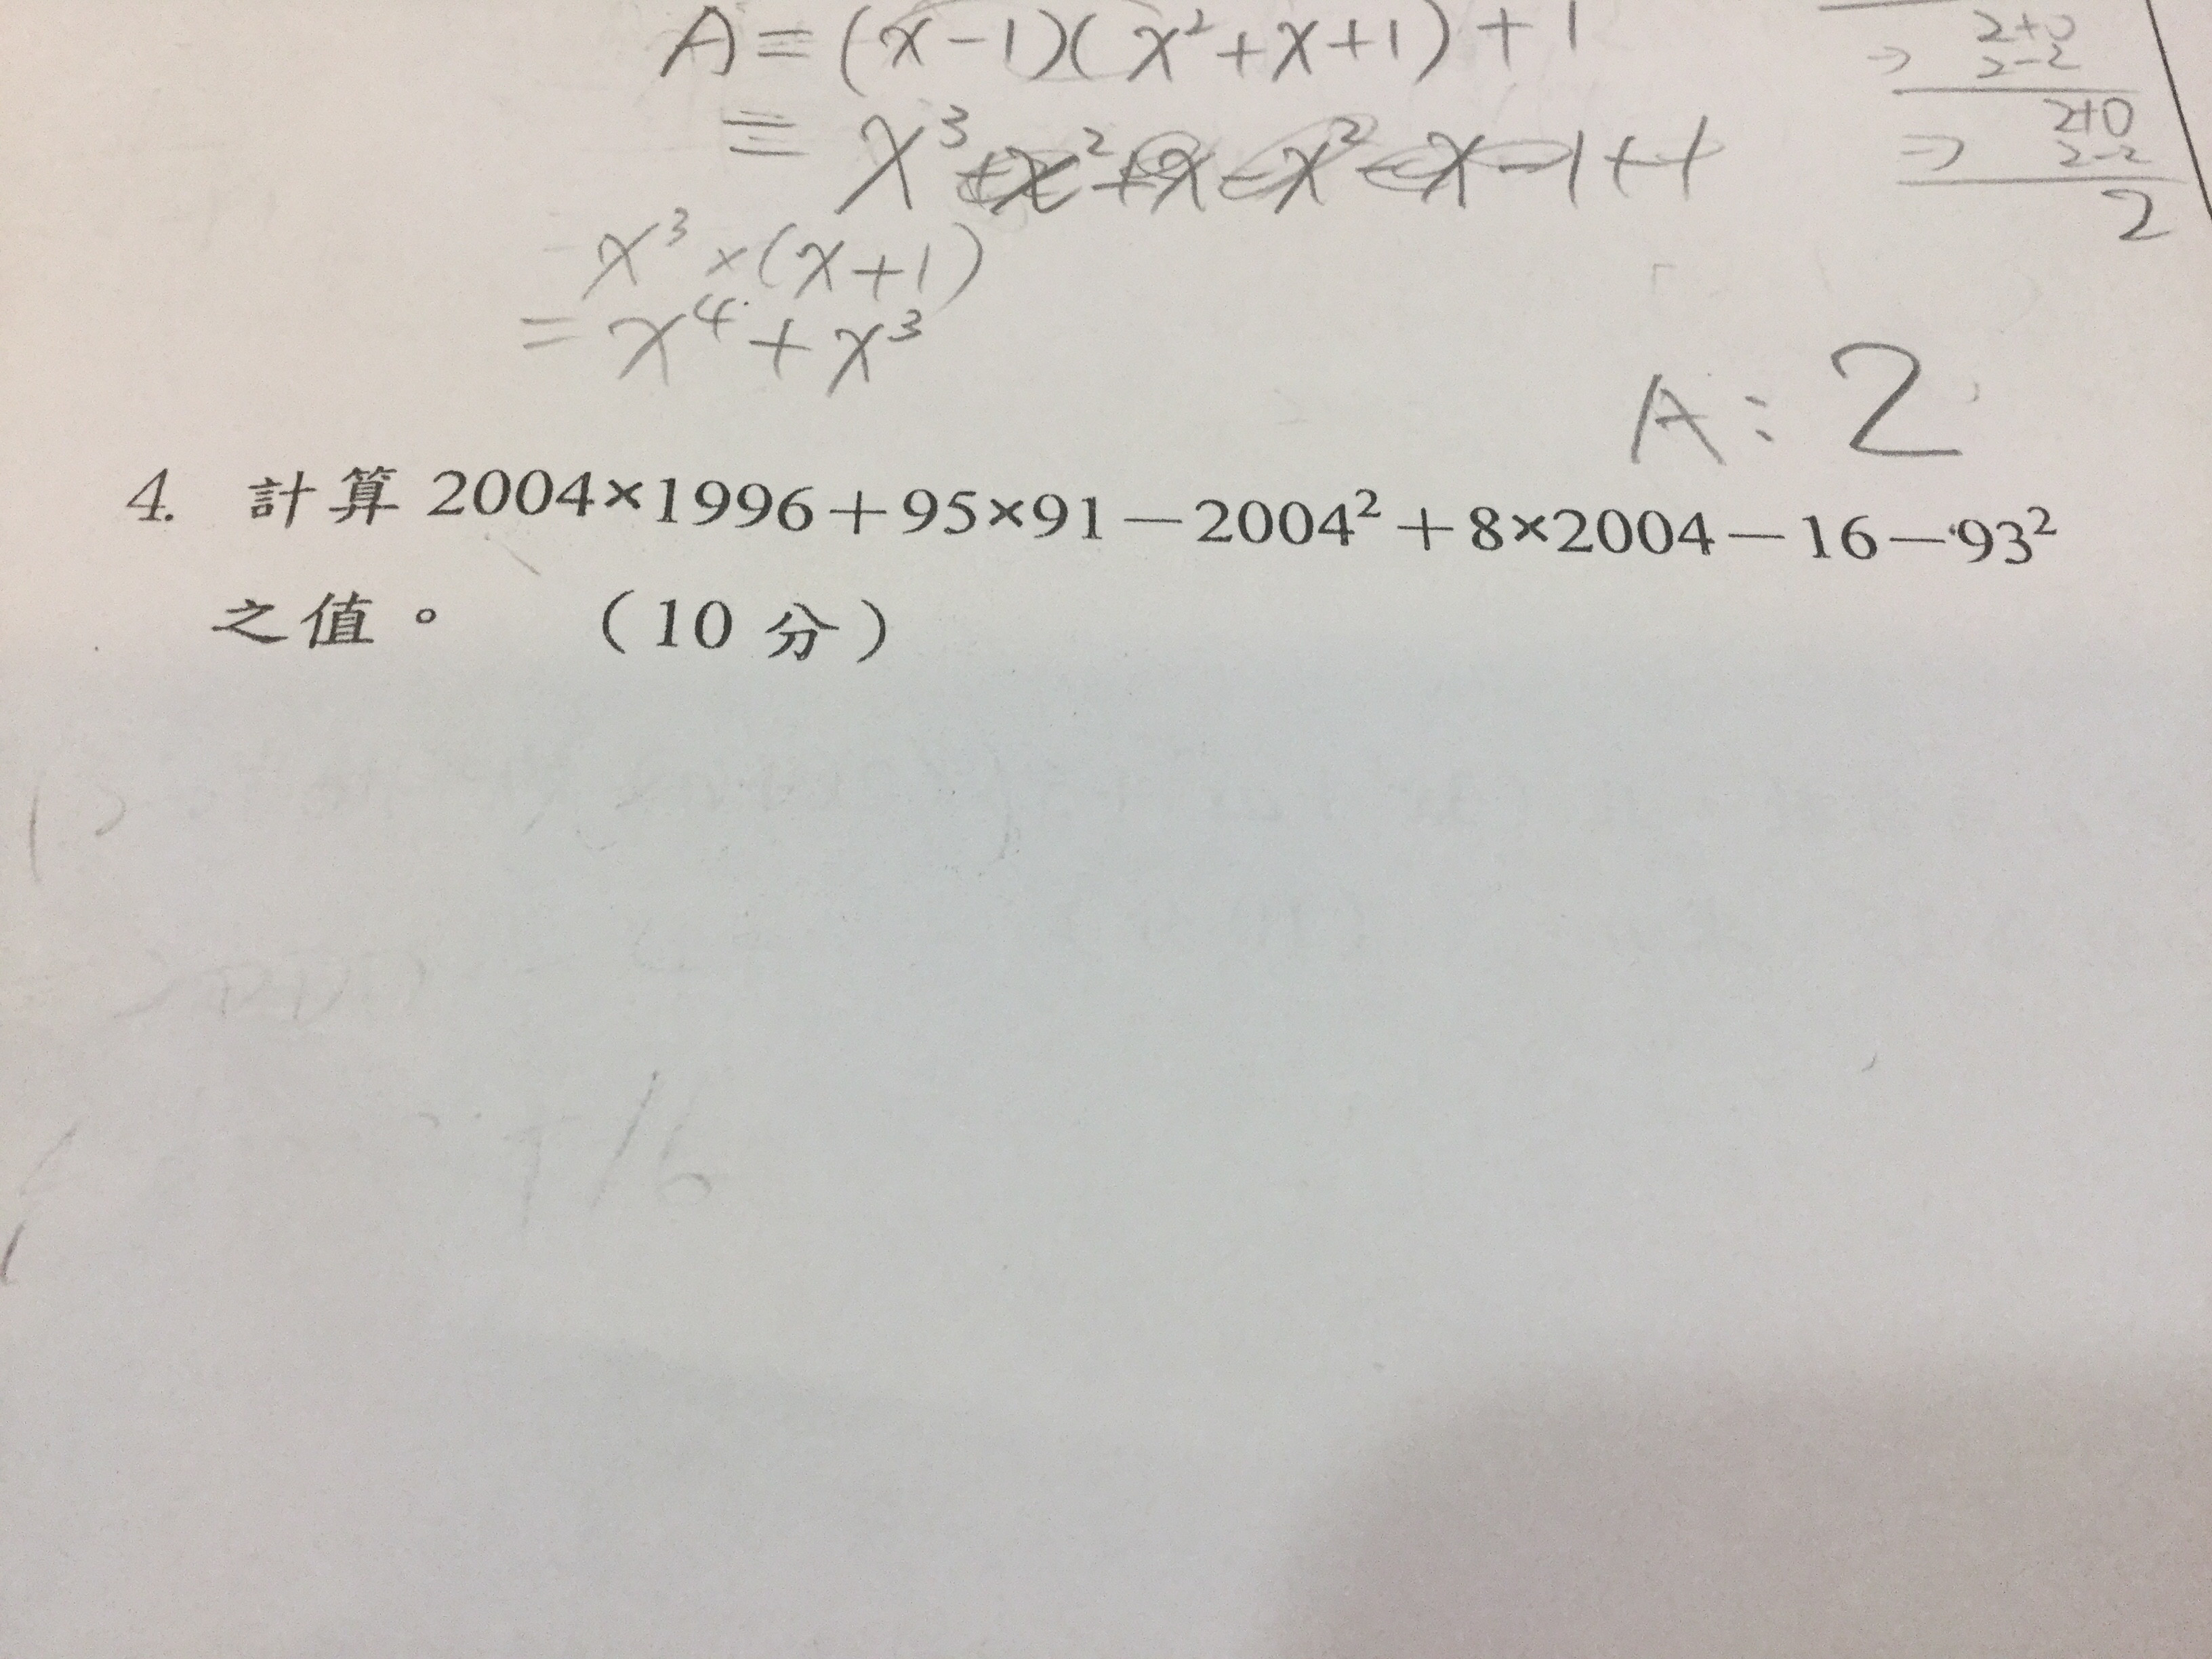 A≡(x-1)(x²+x+1)+1
≡ x³+x²+x-x²-x-1+1
x³×(x+1)
= x⁴+x³
2+0
⇒ 2-2
2+0
⇒ 2-2
2
A:2
4. 計算 2004×1996+95×91-2004²+8×2004-16-93²
之值。 （10 分）